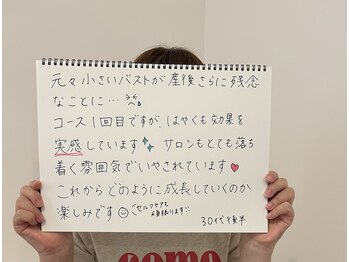 元々小さいバストが産後さらに残念
なことに…
コース1回目ですが、はやくも効果を
実感しています サロンもとても落ち
着く雰囲気でいやされています
これからどのように成長していくのか
楽しみです セルフケアも
頑張ります!!
30代後半